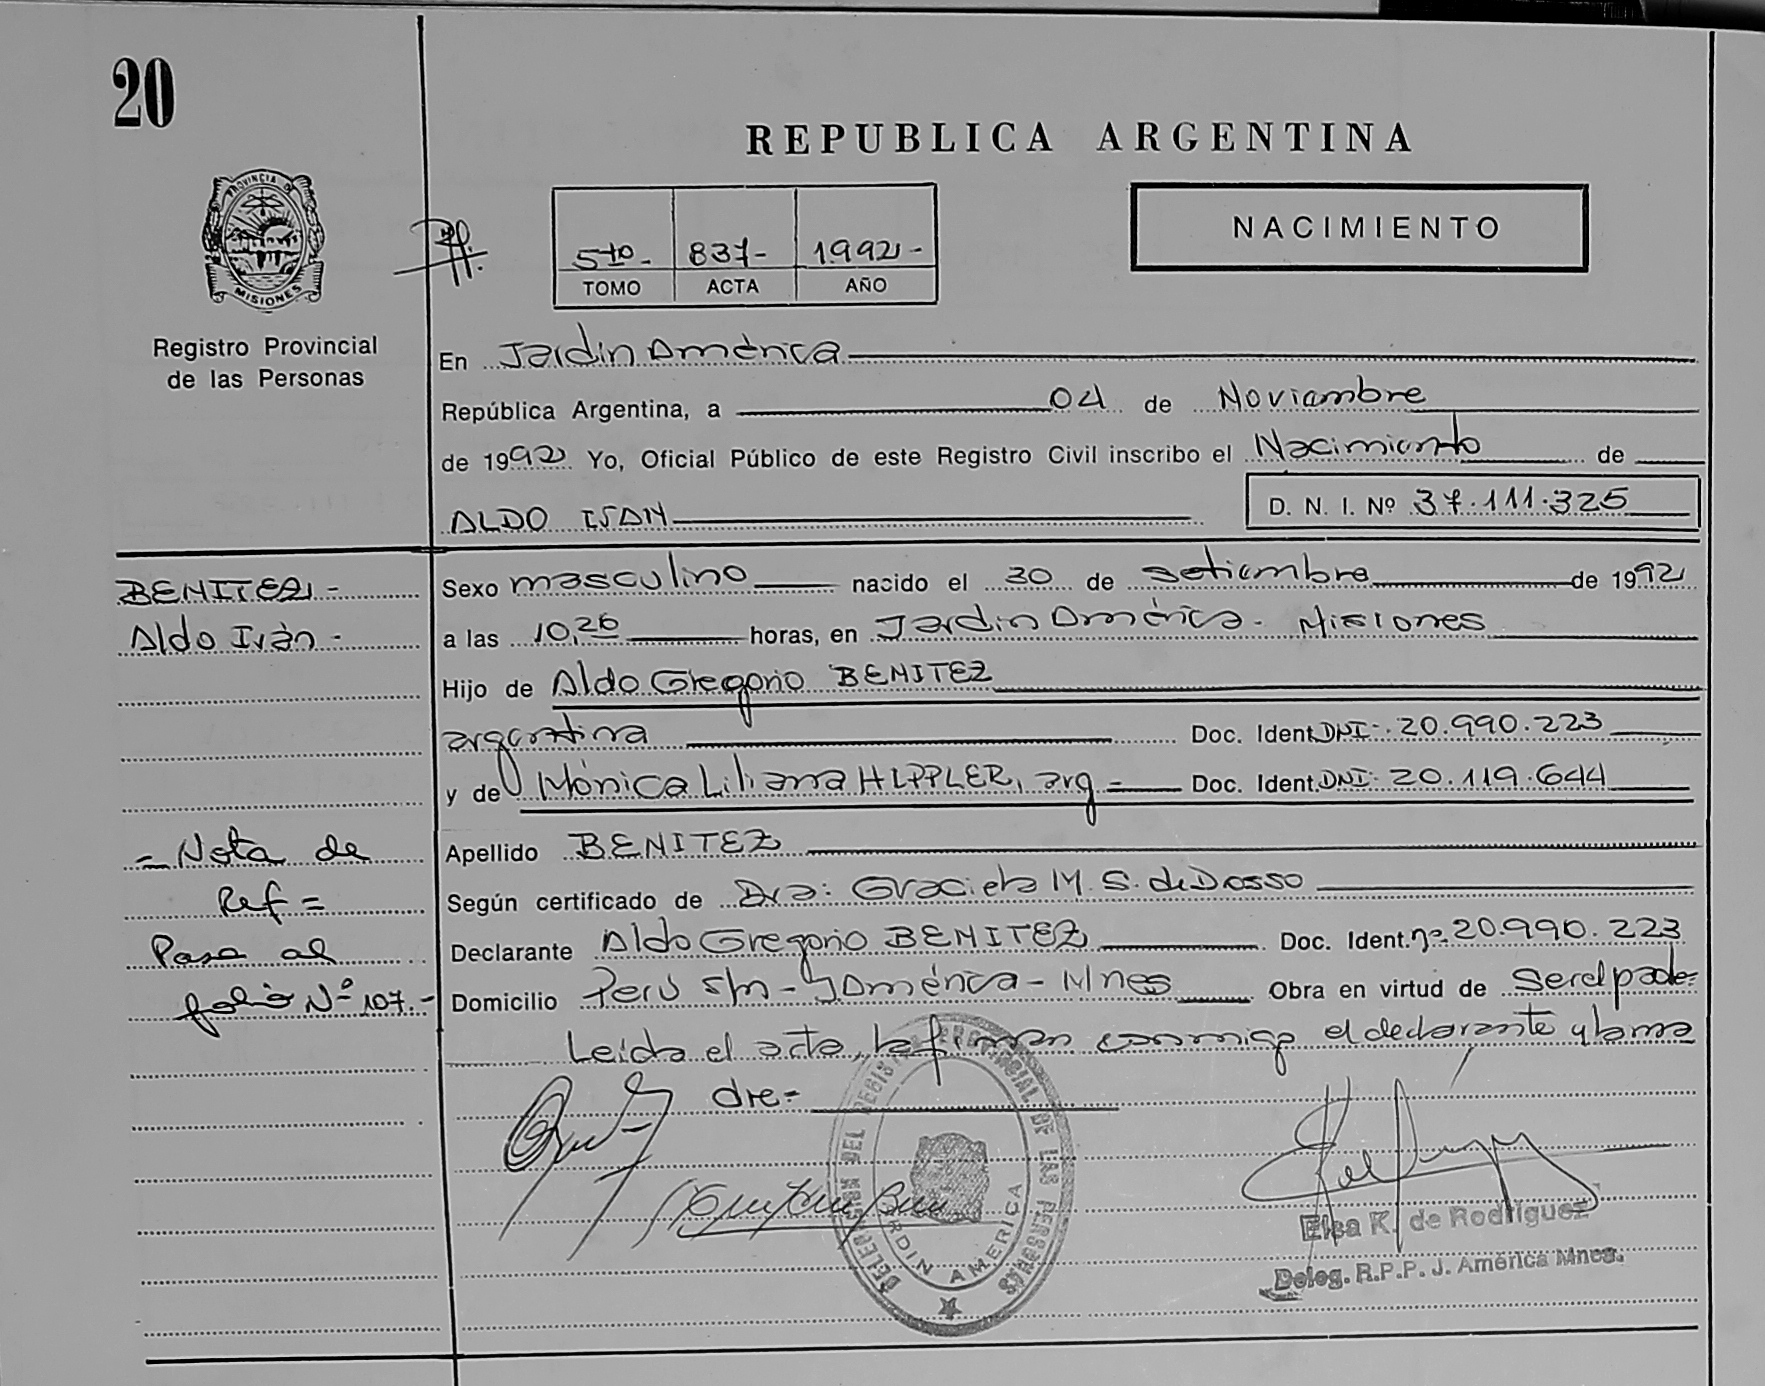 20
REPUBLICA ARGENTINA
PROVINCIA DE
MISIONES
Registro Provincial
de las Personas
5to- 837- 1992-
TOMO ACTA AÑO
NACIMIENTO
En Jardin América
República Argentina, a 04 de Noviembre
de 1992 Yo, Oficial Público de este Registro Civil inscribo el Nacimiento de
ALDO IVAN D. N. I. Nº 37.111.325
BENITEZ-
Aldo Iván-
Sexo masculino nacido el 30 de setiembre de 1992
a las 10,26 horas, en Jardin América. Misiones
Hijo de Aldo Gregorio BENITEZ
argentina Doc. Ident. DNI: 20.990.223
y de Mónica Liliana HIPPLER, arg= Doc. Ident. DNI: 20.119.644
= Nota de
Ref =
Pasa al
folio Nº 107.-
Apellido BENITEZ
Según certificado de Dra: Graciela M. S. de Dosso
Declarante Aldo Gregorio BENITEZ Doc. Ident. nº 20.990.223
Domicilio Perú s/n - J América - Mnes Obra en virtud de Ser el padre
Leida el acta, la firman conmigo el declarante y la ma
dre-
DELEGACION DEL REGISTRO PROVINCIAL DE LAS PERSONAS
JARDIN AMERICA
Elsa K. de Rodriguez
Deleg. R.P.P. J. América Mnes.